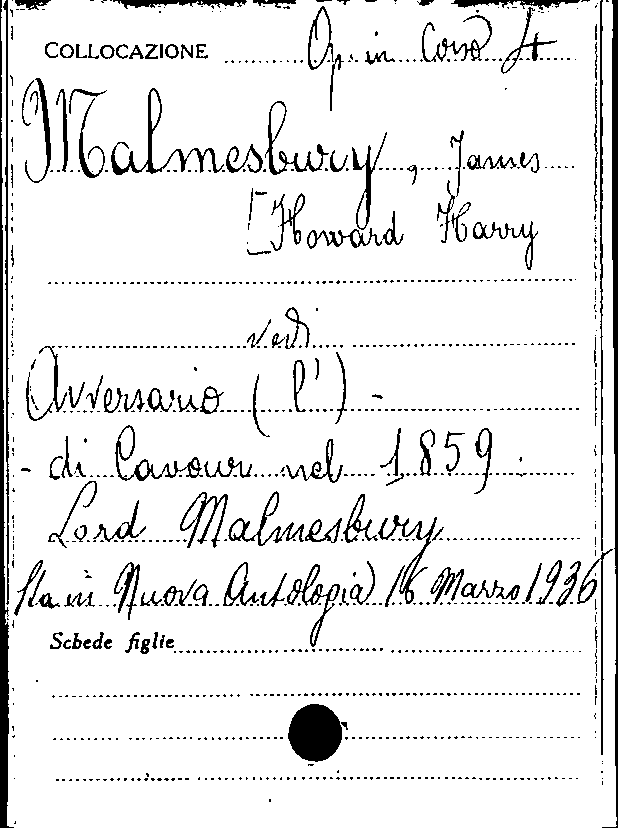 COLLOCAZIONE Op. in Corso 4
Malmesbury, James
[Howard Harry
vedi
Avversario (l') -
- di Cavour nel 1859.
Lord Malmesbury
Sta in Nuova Antologia) 16 Marzo 1936
Schede figlie